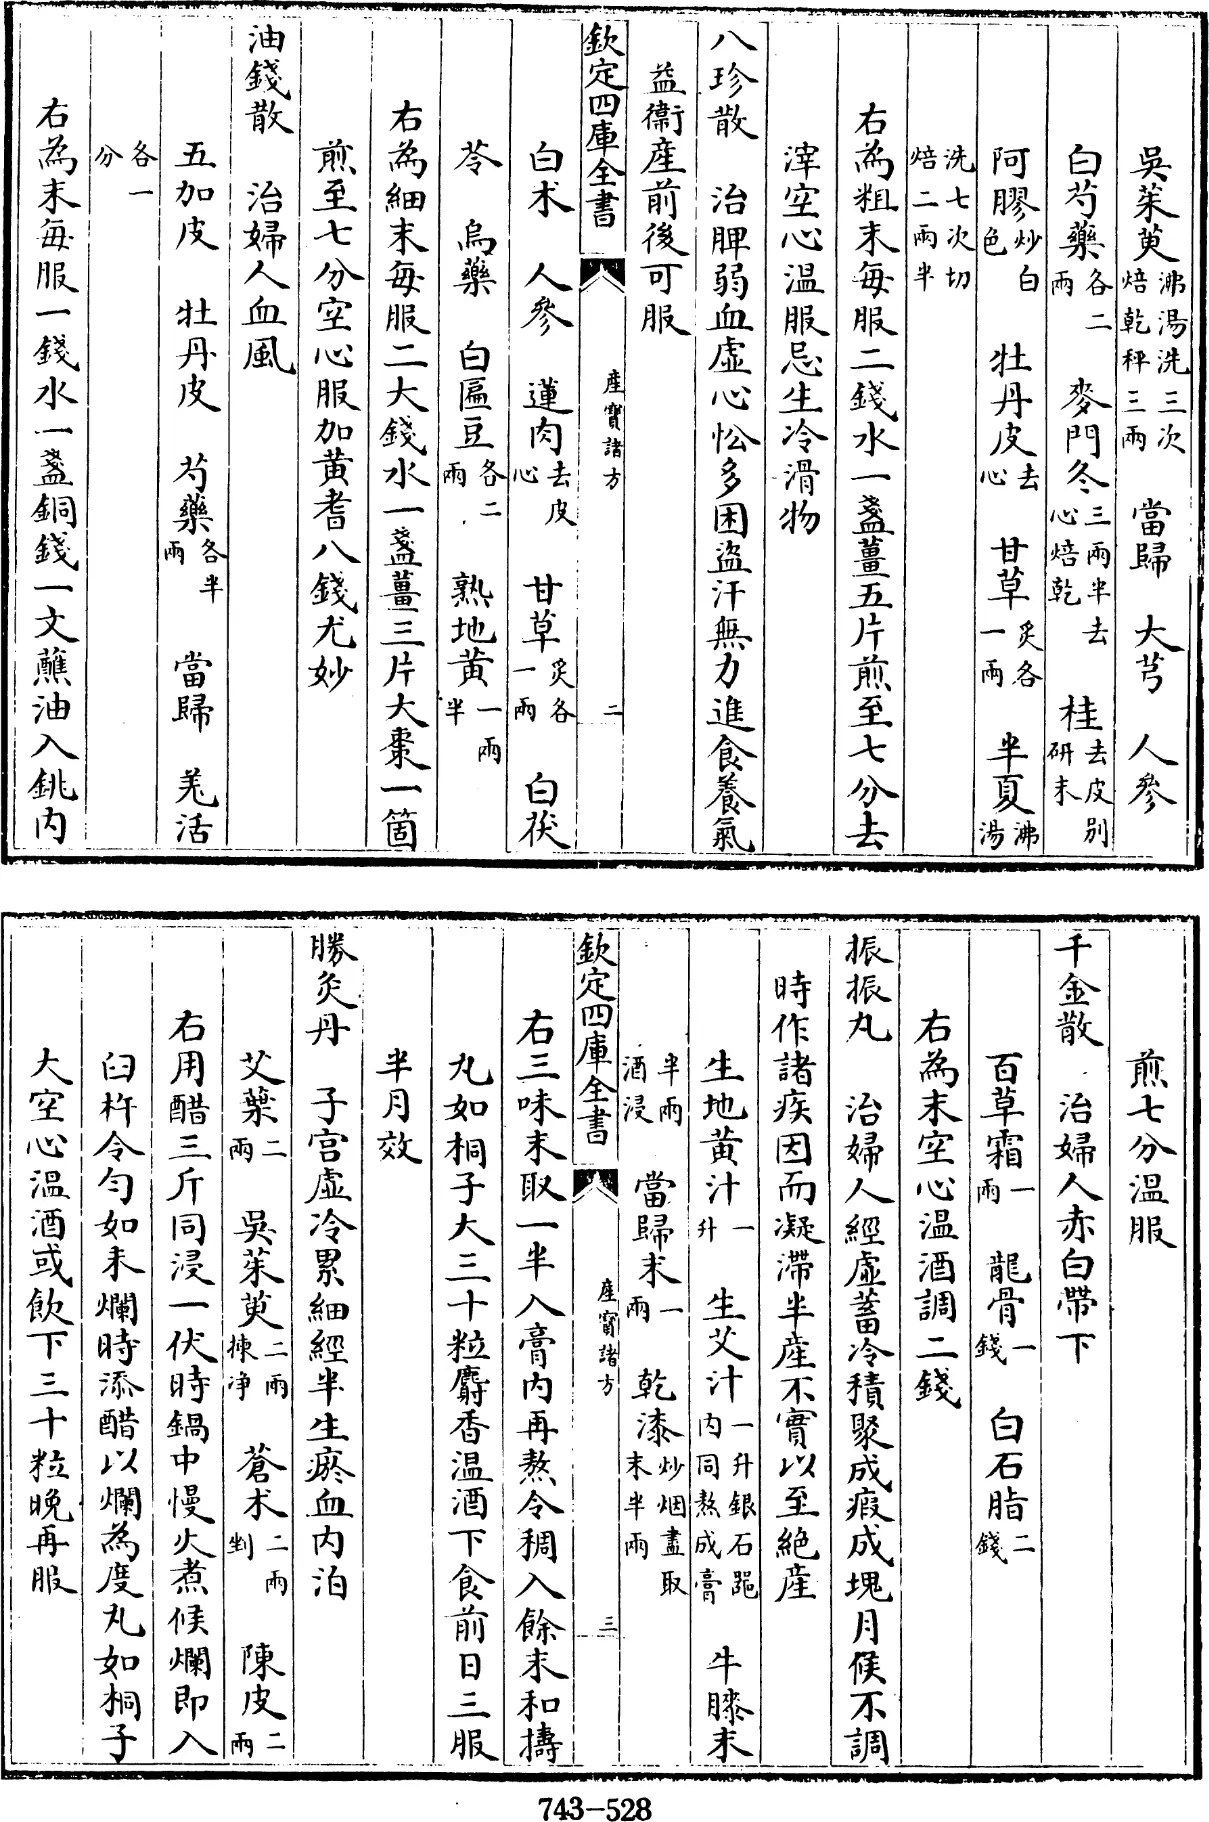 吳茱萸沸湯洗三次焙乾秤三兩 當歸 大芎 人參
白芍藥各二兩 麥門冬三兩半去心焙乾 桂去皮別研末
阿膠炒白色 牡丹皮去心 甘草炙各一兩 半夏沸湯
洗七次切焙二兩半
右為粗末每服二錢水一盞薑五片煎至七分去
滓空心温服忌生冷滑物
八珍散 治脾弱血虛心忪多困盜汗無力進食養氣
益衞産前後可服
欽定四庫全書 産寶諸方 二
白术 人參 蓮肉去皮心 甘草炙各一兩 白茯
苓 烏藥 白匾豆各二兩 熟地黃一兩半
右為細末每服二大錢水一盞薑三片大棗一箇
煎至七分空心服加黃耆八錢尤妙
油錢散 治婦人血風
五加皮 牡丹皮 芍藥各半兩 當歸 羌活
各一分
右為末每服一錢水一盞銅錢一文蘸油入銚内
煎七分温服
千金散 治婦人赤白帶下
百草霜一兩 龍骨一錢 白石脂二錢
右為末空心温酒調二錢
振振丸 治婦人經虛蓄冷積聚成瘕成塊月候不調
時作諸疾因而凝滯半産不實以至絶産
生地黃汁一升 生艾汁一升銀石器内同熬成膏 牛膝末
半兩酒浸 當歸末一兩 乾漆炒烟盡取末半兩
欽定四庫全書 産寶諸方 三
右三味末取一半入膏内再熬令稠入餘末和擣
丸如桐子大三十粒麝香温酒下食前日三服
半月效
勝灸丹 子宫虛冷累細經半生瘀血内泊
艾葉二兩 吳茱萸二兩揀净 蒼术二兩剉 陳皮二兩
右用醋三斤同浸一伏時鍋中慢火煮候爛即入
臼杵令勻如未爛時添醋以爛為度丸如桐子
大空心温酒或飲下三十粒晚再服
743-528